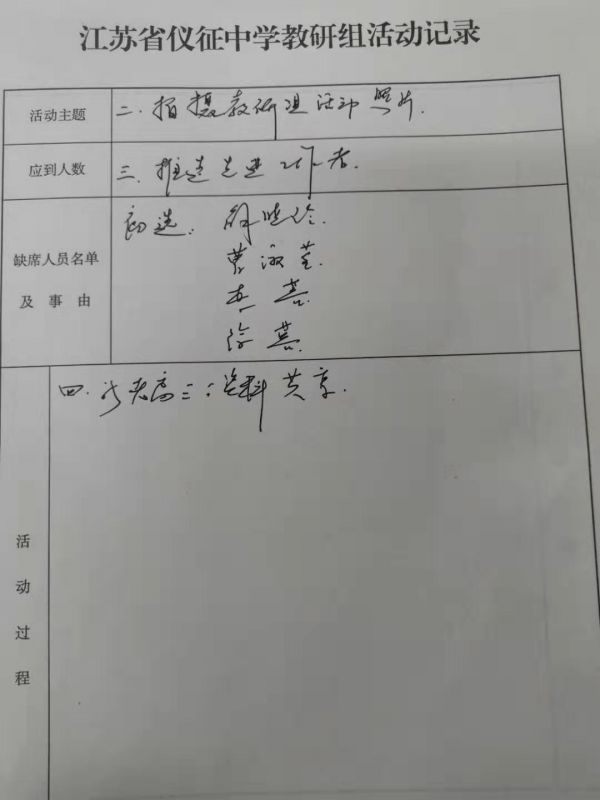 江苏省仪征中学教研组活动记录
活动主题
二.拍摄教研组活动照片.
应到人数
三.推选先进工作者.
缺席人员名单
及事由
初选:
曹
徐
四. 高三:资料共享.
活动过程